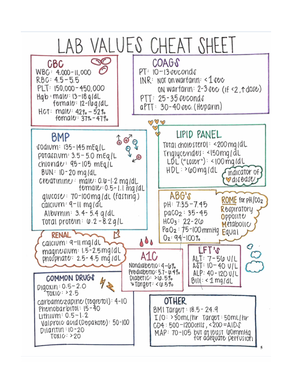 LAB VALUES CHEAT SHEET
CBC
WBC: 4,000-11,000
RBC: 4.5-5.5
PLT: 150,000-450,000
Hgb- male: 13-18g/dL
female: 12-16g/dL
Hct- male: 42%-52%
female: 37%-47%
COAGS
PT: 10-13seconds
INR: not on warfarin: <1 sec
on warfarin: 2-3 sec (if <2, ↑dose)
PTT: 25-35 seconds
aPTT: 30-40 sec (Heparin)
BMP
sodium: 135-145 mEq/L
potassium: 3.5-5.0 mEq/L
chloride: 95-105 mEq/L
BUN: 10-20 mg/dL
creatinine: male: 0.6-1.2 mg/dL
female: 0.5-1.1 mg/dL
glucose: 70-100mg/dL (fasting)
calcium: 9-11 mg/dL
Albumin: 3.4-5.4 g/dL
Total protein: 6.2-8.2g/L
LIPID PANEL
Total cholesterol: <200mg/dL
Triglycerides: <150mg/dL
LDL ("loser"): <100mg/dL
HDL: >60mg/dL
Indicator of
disease
ABG's
PH: 7.35-7.45
paCO2: 35-45
HCO3: 22-26
PaO2: 75-100mmHg
O2: 94-100%
ROME for pH/CO2
Respiratory
opposite
Metabolic
Equal
RENAL
calcium: 9-11mg/dL
magnesium: 1.5-2.5mg/dL
phosphate: 2.5-4.5 mg/dL
A1C
Nondiabetic: 4-6%
Prediabetic: 5.7-6.4%
Diabetic: >6.5%
Target: <6.5%
LFT's
ALT: 7-56 U/L
AST: 10-40 U/L
ALP: 40-120 U/L
Bili: <1 mg/dL
COMMON DRUGS
Digoxin: 0.5-2.0
Toxic: >2.5
Carbamazepine (tegretol): 4-10
Phenobarbital: 15-40
Lithium: 0.5-1.2
Valproic acid (Depakote): 50-100
Dilantin: 10-20
Toxic: >20
OTHER
BMI Target: 18.5-24.9
I/O: >30mL/hr
CD4: 500-1200cells, <200=AIDS
MAP: 70-105 but at least 60mmHg
for adequate perfusion